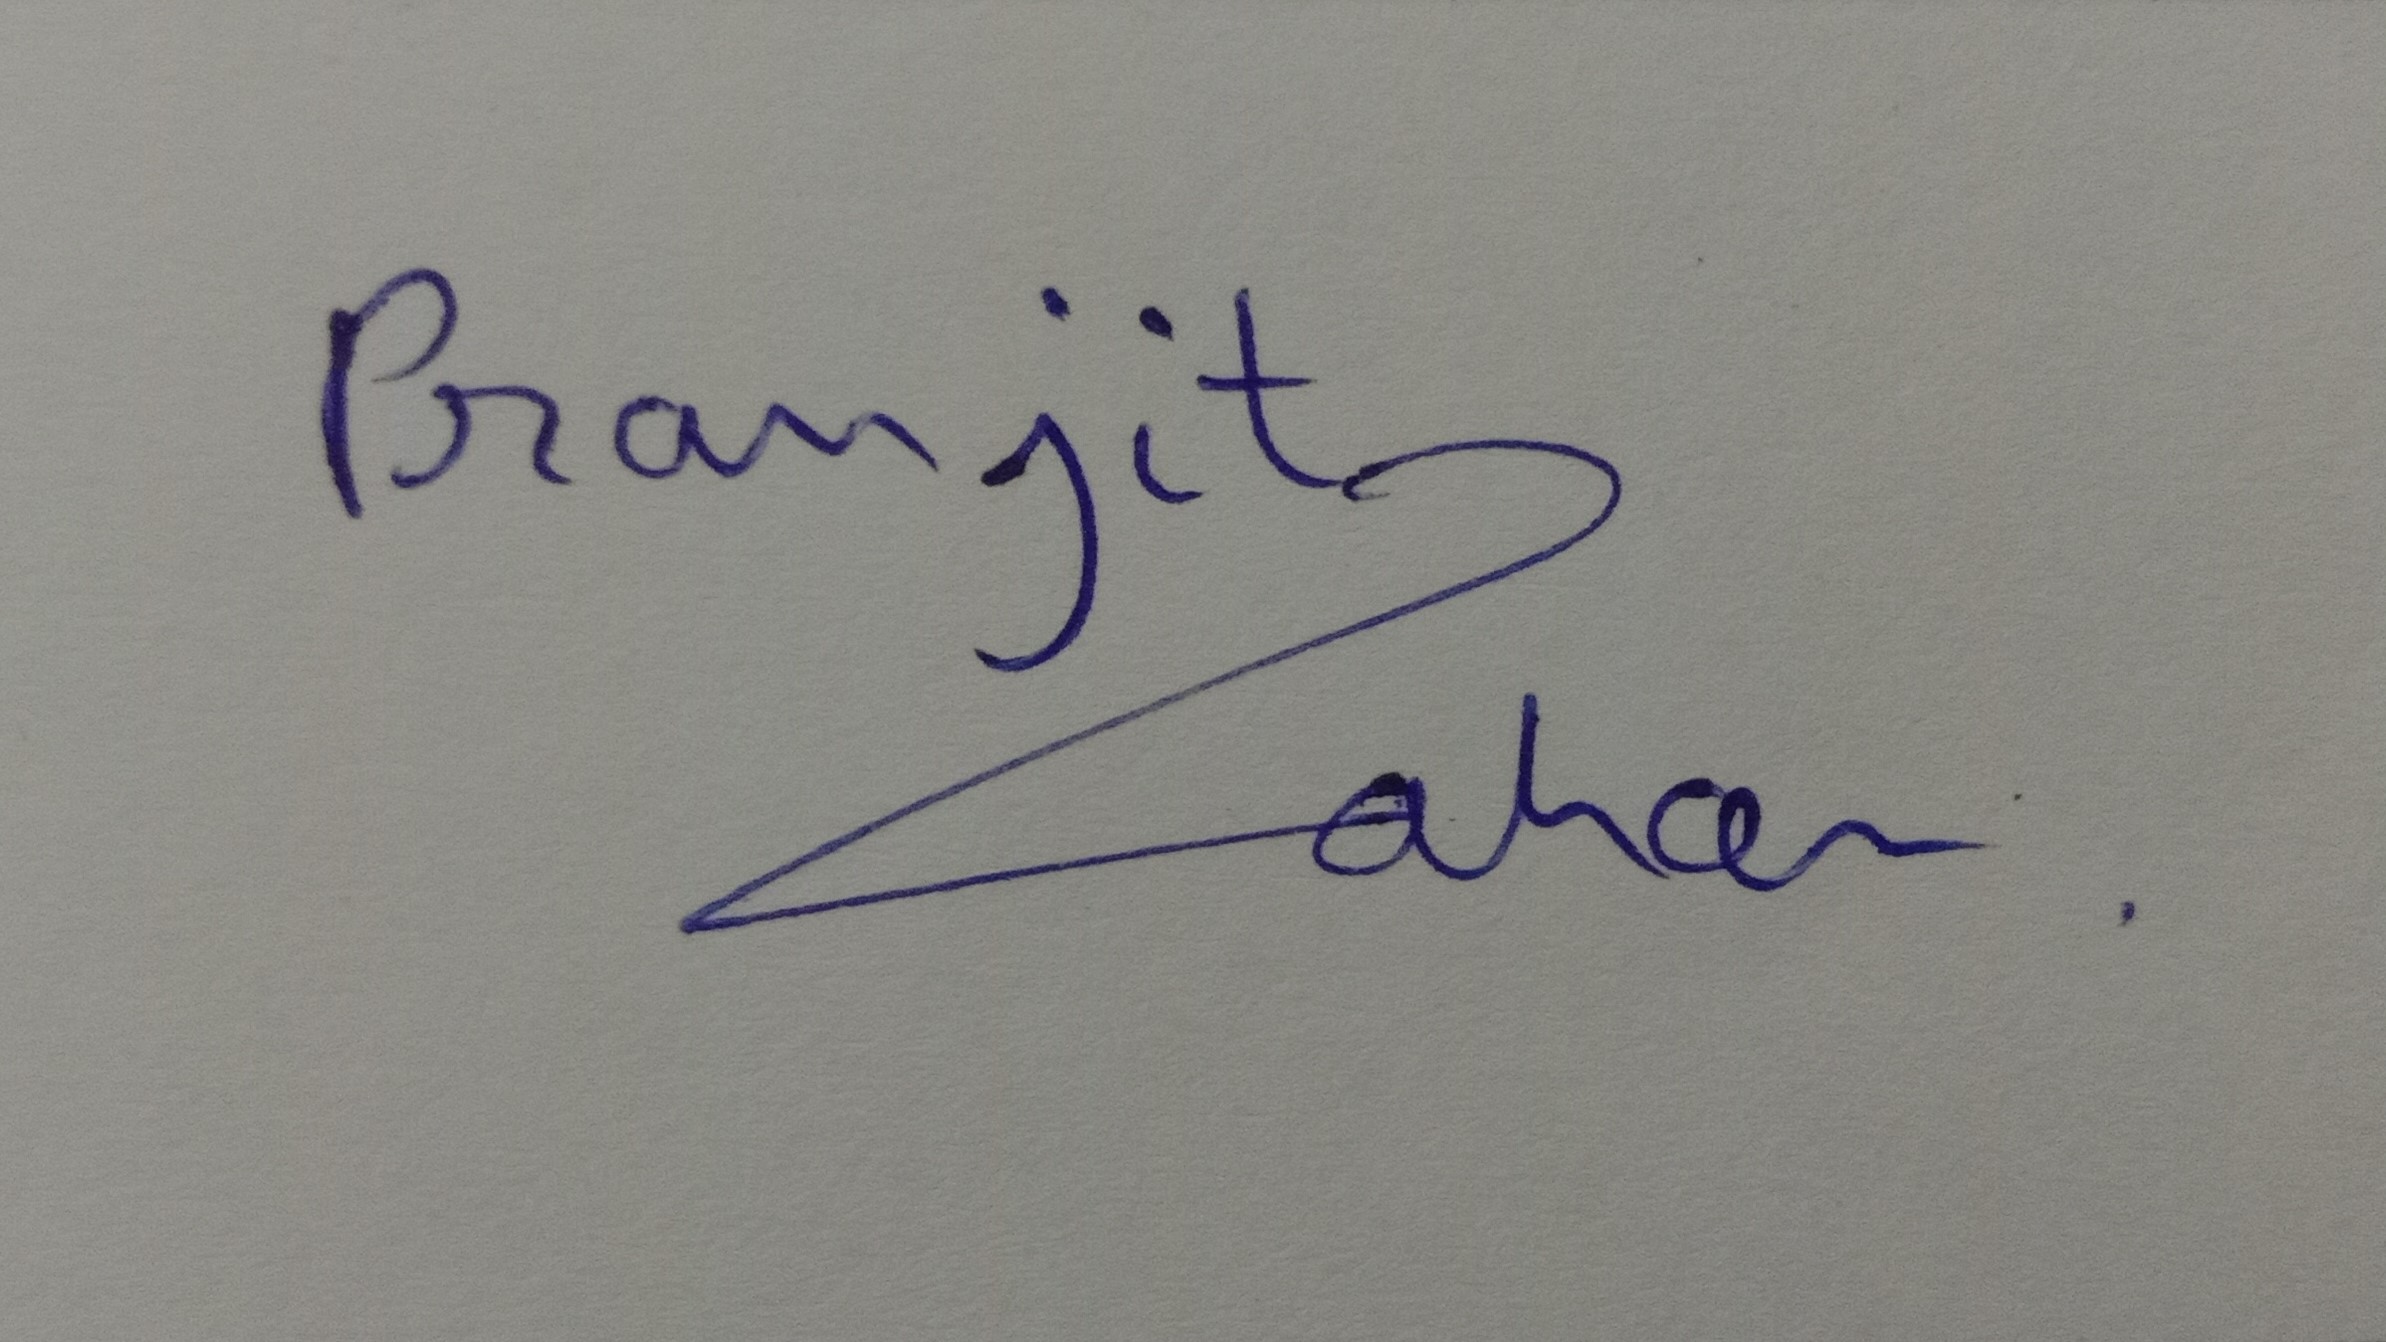 Pranjit
Lahan.